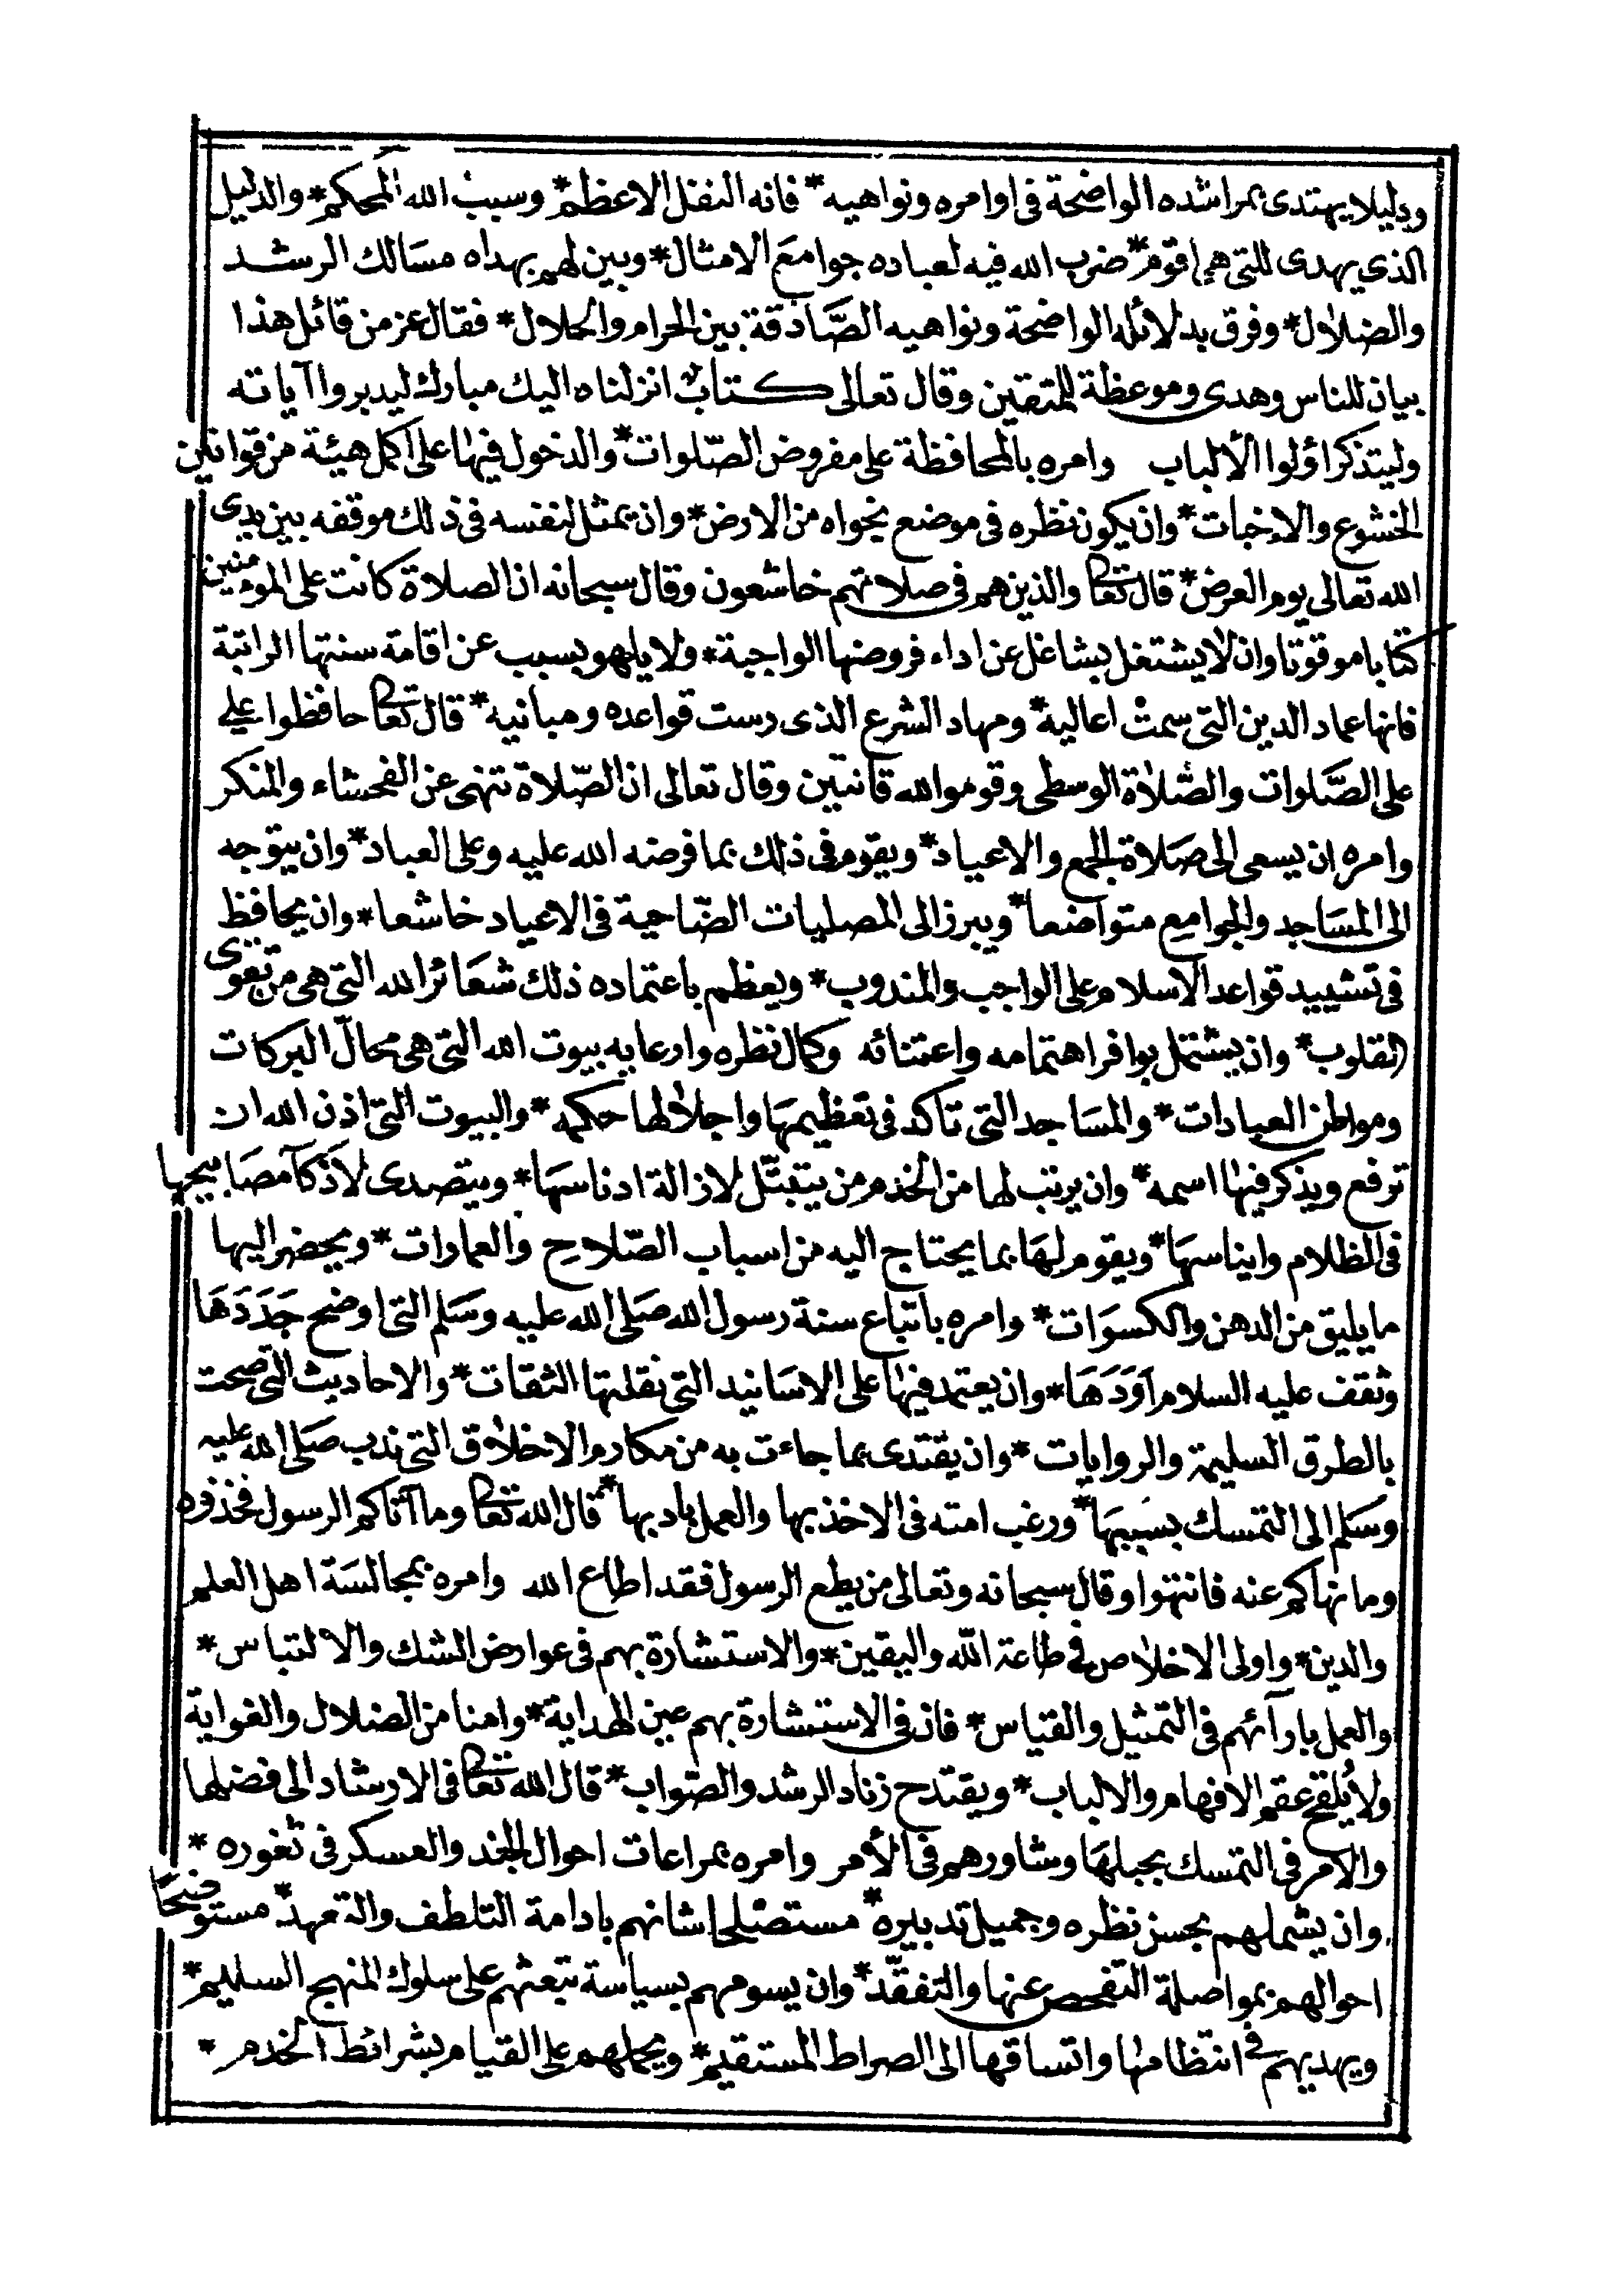 ودليلا يهتدى بمراشده الواضحة فى اوامره ونواهيه * فانه الثقل الاعظم * وسبب الله المحكم * والدليل
الذي يهدى للتى هى اقوم * ضرب الله فيه لعباده جوامع الامثال * وبين لهم بهداه مسالك الرشد
والضلال * وفرق بدلائله الواضحة ونواهيه الصّادقة بين الحرام والحلال * فقال عز من قائل هذا
بيان للناس وهدى وموعظة للمتقين وقال تعالى كتاب انزلناه اليك مبارك ليدبروا آياته
وليتذكر اؤلوا الألباب وامره بالمحافظة على مفروض الصّلوات * والدخول فيها على اكمل هيئة من قوانين
الخشوع والاخبات * وان يكون نظره فى موضع نجواه من الارض * وان يمثل لنفسه فى ذلك موقفه بين يدى
الله تعالى يوم العرض * قال تعا والذين هم فى صلاتهم خاشعون وقال سبحانه ان الصلاة كانت على المومنين
كتابا موقوتا وان لا يشتغل بشاغل عن اداء فروضها الواجبة * ولا يلهو بسبب عن اقامة سنتها الراتبة
فانها عماد الدين التى سمت اعاليه * ومهاد الشرع الذى رست قواعده ومبانيه * قال تعا حافظوا علي
على الصّلوات والصّلاة الوسطى وقوموا لله قانتين وقال تعالى ان الصّلاة تنهى عن الفحشاء والمنكر
وامره ان يسعى الى صلاة الجمع والاعياد * ويقوم فى ذلك بما فرضه الله عليه وعلى العباد * وان يتوجه
الى المساجد والجوامع متواضعا * ويبرز الى المصليات الضّاحية فى الاعياد خاشعا * وان يحافظ
فى تشييد قواعد الاسلام على الواجب والمندوب * ويعظم باعتماده ذلك شعائر الله التى هى من تقوى
القلوب * وان يشتمل بوافر اهتمامه واعتنائه وكمال نظره وارعايه بيوت الله التى هى محالّ البركات
ومواطن العبادات * والمساجد التى تاكد فى تعظيمها واجلالها حكمه * والبيوت التى اذن الله ان
ترفع ويذكر فيها اسمه * وان يرتب لها من الخدم من يتبتّل لازالة ادناسها * ويتصدى لاذكآ مصابيحها
فى الظلام وايناسها * ويقوم لها بما يحتاج اليه من اسباب الصّلاح والعمارات * ويحضر اليها
ما يليق من الدهن والكسوات * وامره باتباع سنة رسول الله صلى الله عليه وسلم التى اوضح جَدَدَهَا
وثقف عليه السلام اَوَدَهَا * وان يعتمد فيها على الاسانيد التى نقلتها الثقات * والاحاديث التى صحت
بالطرق السليمة والروايات * وان يقتدى بما جاءت به من مكارم الاخلاق التى ندب صلى الله عليه
وسلم الى التمسك بسببها * ورغب امته فى الاخذ بها والعمل بادبها * قال الله تعا وما آتاكم الرسول فخذوه
وما نهاكم عنه فانتهوا وقال سبحانه وتعالى من يطع الرسول فقد اطاع الله وامره بمجالسة اهل العلم
والدين * واولى الاخلاص فى طاعة الله واليقين * والاستشارة بهم فى عوارض الشك والالتباس *
والعمل بارآئهم فى التمثيل والقياس * فان فى الاستشارة بهم عين الهداية * وامنا من الضلال والغواية
ولا يُلقح عقم الافهام والالباب * ويقتدح زناد الرشد والصّواب * قال الله تعا فى الارشاد الى فضلها
والامر فى التمسك بحبلها وشاورهم فى الأمر وامره بمراعات احوال الجند والعسكر فى ثغوره *
وان يشملهم بحسن نظره وجميل تدبيره * مستصلحا شانهم بادامة التلطف والتعهد * مستوضحًا
احوالهم بمواصلة التفحص عنها والتفقّد * وان يسومهم بسياسة تبعثهم على سلوك المنهج السليم *
ويهديهم فى انتظامها واتساقها الى الصراط المستقيم * ويحملهم على القيام بشرائط الخدم *